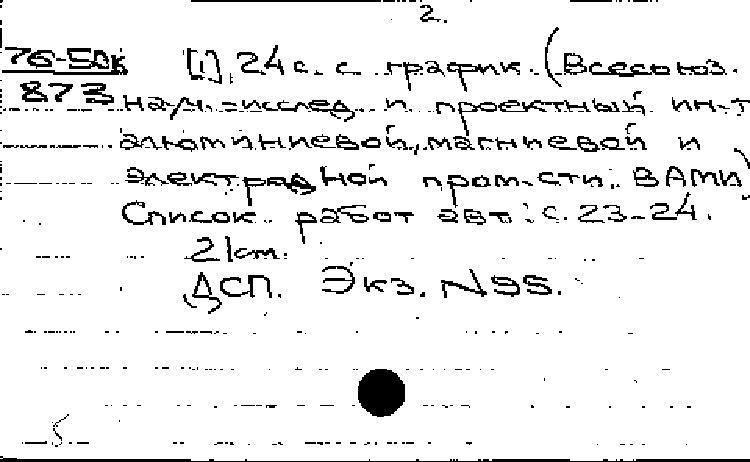 2.
76-50к [1], 24 с. с график. (Всесоюз.
873 науч.-исслед. и проектный ин-т
алюминиевой, магниевой и
электродной пром-сти. ВАМИ)
Список работ авт.: с. 23-24.
21 cm.
ДСП. Экз. N95.
5